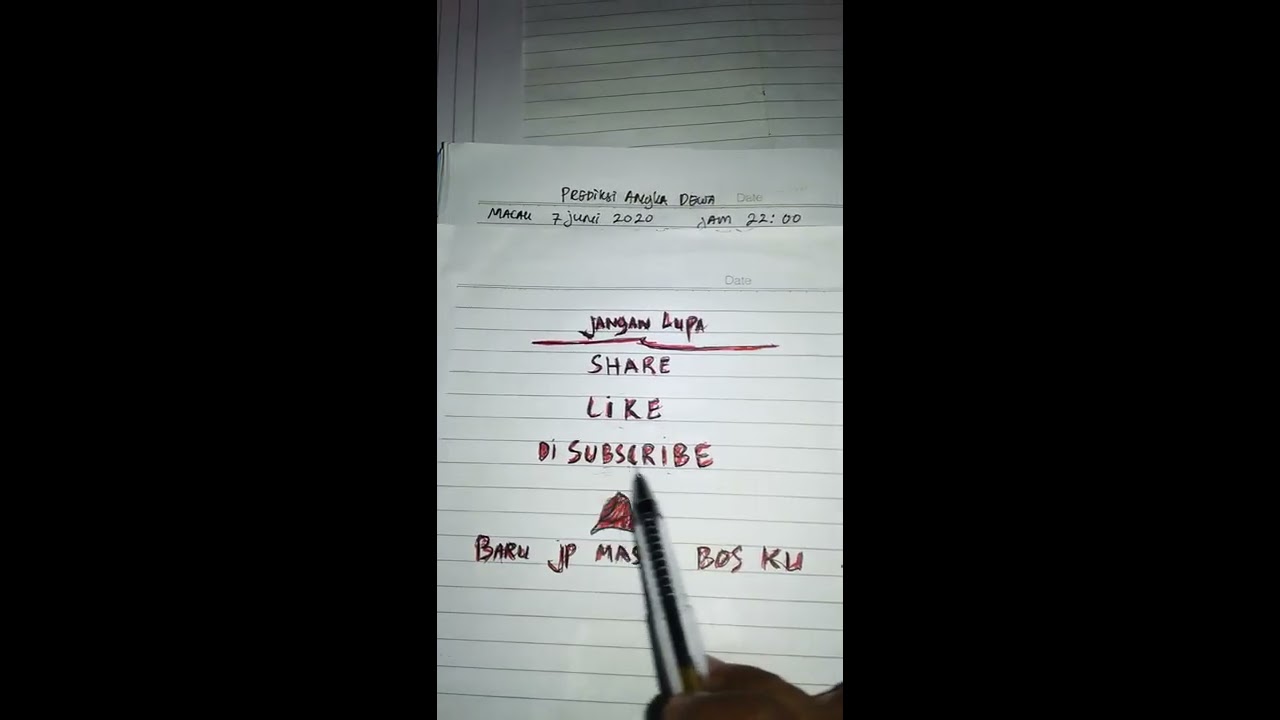 PREDiKSi ANgKA DEWA Date
MACAU 7 juni 2020 jAM 22:00
Date
jANgAN LUPA
SHARE
LiKE
Di SUBSCRiBE
BARU jP BOS KU